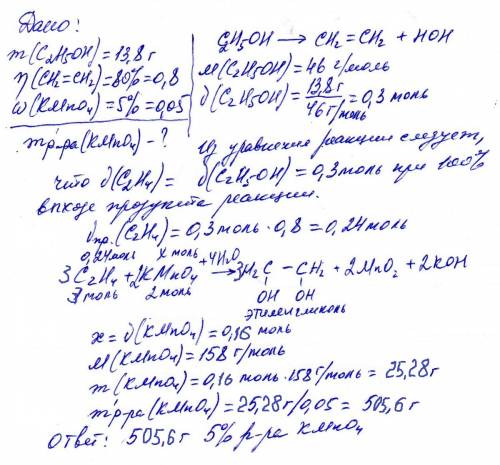 Дано:
m(C₂H₅OH) = 13,8 г
η(CH₂=CH₂) = 80% = 0,8
ω(KMnO₄) = 5% = 0,05
m р-ра(KMnO₄) - ?
C₂H₅OH → CH₂=CH₂ + HOH
M(C₂H₅OH) = 46 г/моль
ν(C₂H₅OH) = 13,8 г / 46 г/моль = 0,3 моль
Из уравнения реакции следует,
что ν(C₂H₄) = ν(C₂H₅OH) = 0,3 моль при 100%
выходе продукта реакции.
ν пр.(C₂H₄) = 0,3 моль · 0,8 = 0,24 моль
0,24 моль x моль
3C₂H₄ + 2KMnO₄ + 4H₂O → 3H₂C - CH₂ + 2MnO₂ + 2KOH
3 моль 2 моль OH OH
этиленгликоль
x = ν(KMnO₄) = 0,16 моль
M(KMnO₄) = 158 г/моль
m(KMnO₄) = 0,16 моль · 158 г/моль = 25,28 г
m р-ра(KMnO₄) = 25,28 г/0,05 = 505,6 г
Ответ: 505,6 г 5% р-ра KMnO₄